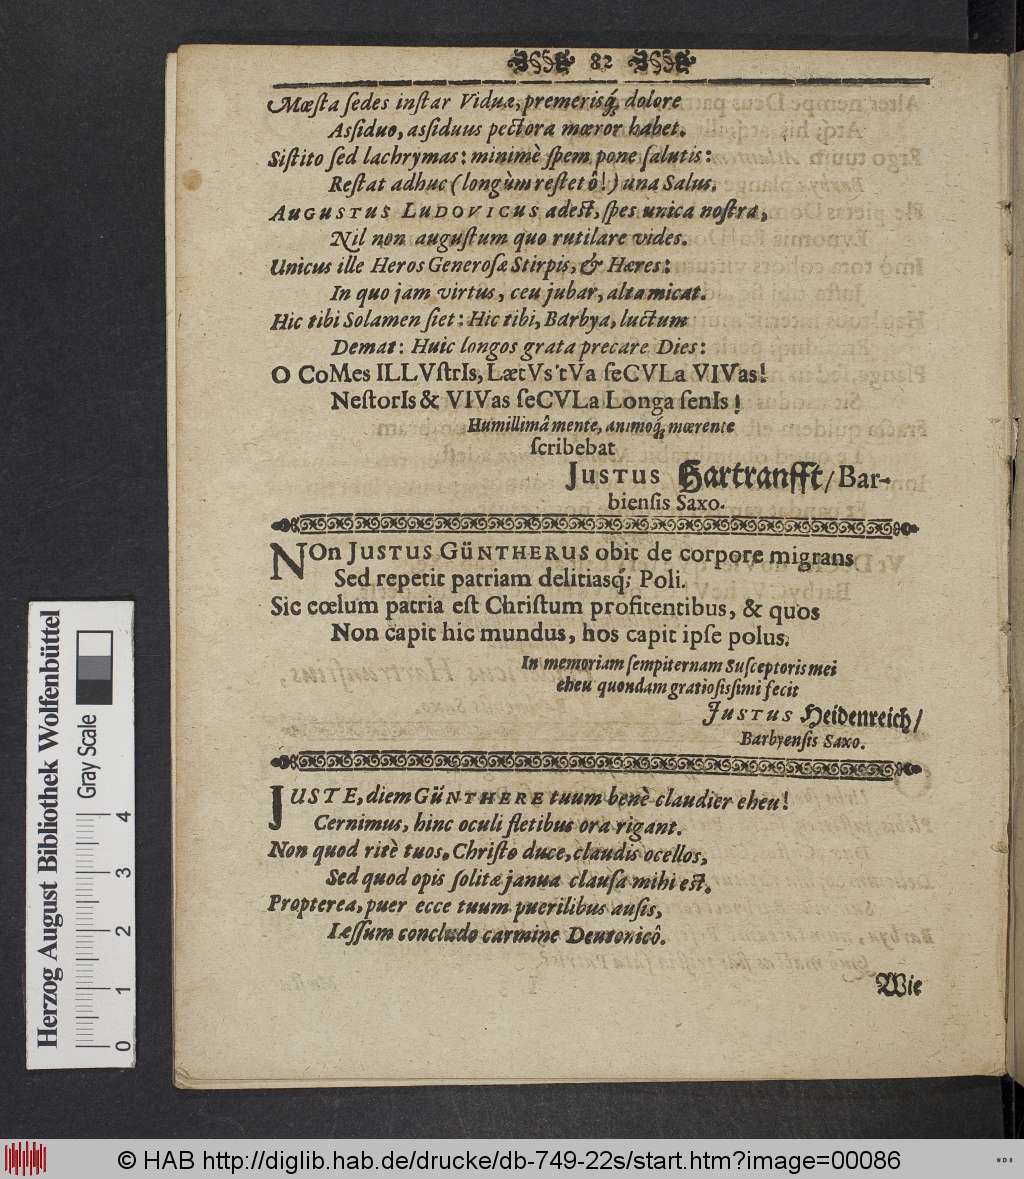 82
Mœſta ſedes inſtar Viduæ, premerisq́; dolore
Aſsiduo, aſsiduus pectora mœror habet.
Siſtito ſed lachrymas: minimè ſpem pone ſalutis:
Reſtat adhuc (longùm reſtet ô!) una Salus.
AUGUSTUS LUDOVICUS adeſt, ſpes unica noſtra,
Nil non auguſtum quo rutilare vides.
Unicus ille Heros Generoſæ Stirpis, & Hæres:
In quo jam virtus, ceu jubar, alta micat.
Hic tibi Solamen fiet: Hic tibi, Barbya, luctum
Demat: Huic longos grata precare Dies:
O CoMes ILLVſtrIs, LætVs 'tVa ſeCVLa VIVas!
NeſtorIs & VIVas ſeCVLa Longa ſenIs!
Humillimâ mente, animoq́; mœrente
ſcribebat
JUSTUS Hartranfft/ Bar-
bienſis Saxo.
NOn JUSTUS GüNTHERUS obit de corpore migrans
Sed repetit patriam delitiasq́; Poli.
Sic cœlum patria eſt Chriſtum profitentibus, & quos
Non capit hic mundus, hos capit ipſe polus.
In memoriam ſempiternam Suſceptoris mei
eheu quondam gratioſiſsimi fecit
JUSTUS Heidenreich/
Barbyenſis Saxo.
JUSTE, diem GüNTHERE tuum benè claudier eheu!
Cernimus, hinc oculi fletibus ora rigant.
Non quod ritè tuos, Chriſto duce, claudis ocellos,
Sed quod opis ſolitæ janua clauſa mihi eſt.
Propterea, puer ecce tuum puerilibus auſis,
Læſſum concludo carmine Deutonicô.
Wie
Herzog August Bibliothek Wolfenbüttel
Gray Scale
0 1 2 3 4
© HAB http://diglib.hab.de/drucke/db-749-22s/start.htm?image=00086